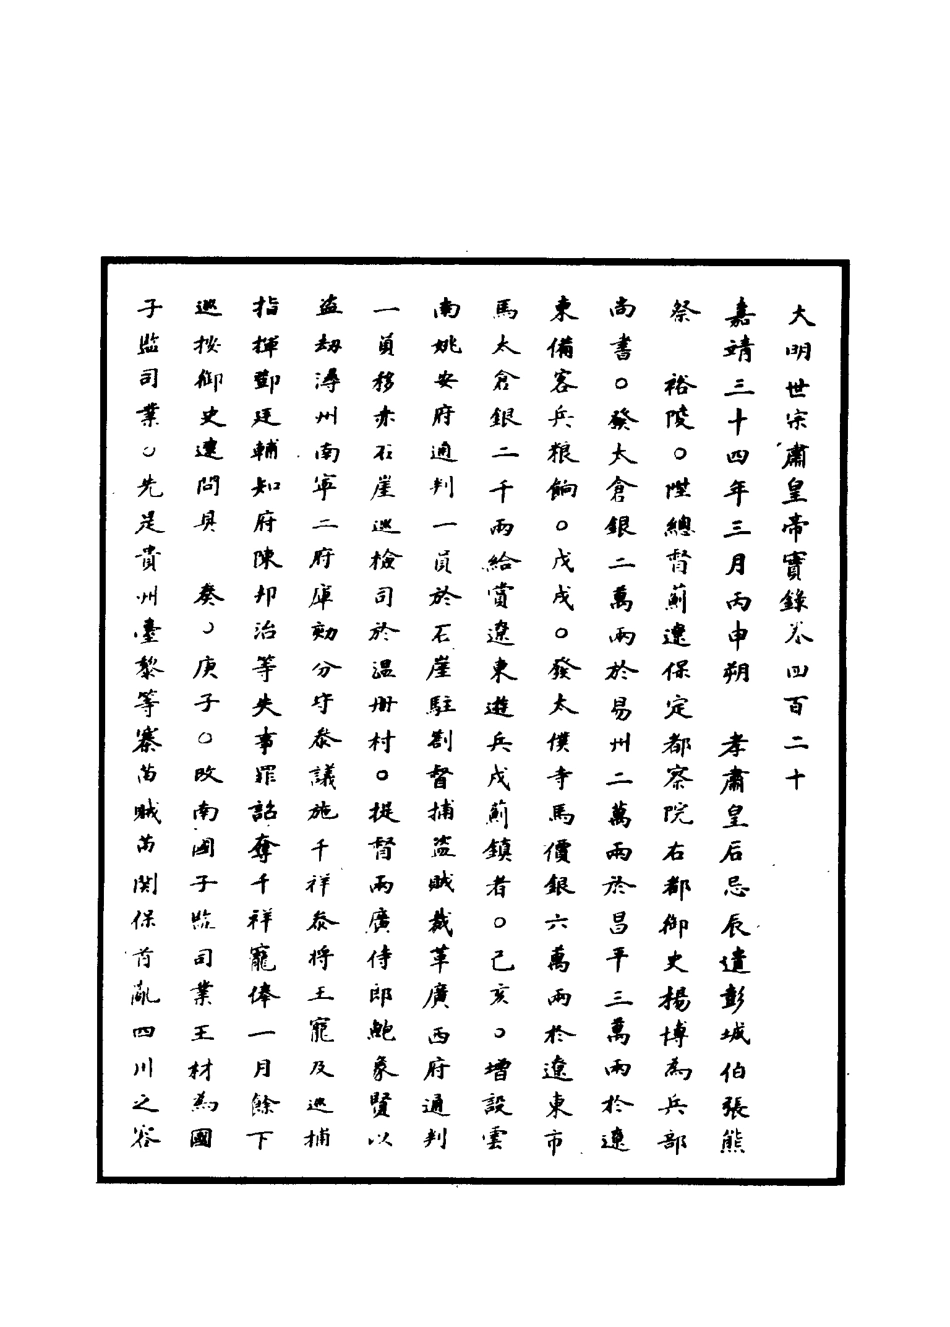 大明世宗肅皇帝實錄卷四百二十
嘉靖三十四年三月丙申朔　孝肅皇后忌辰遣彭城伯張熊
祭　裕陵○陞總督薊遼保定都察院右都御史楊博為兵部
尚書○發太倉銀二萬兩於易州二萬兩於昌平三萬兩於遼
東備客兵粮餉○戊戌○發太僕寺馬價銀六萬兩於遼東市
馬太倉銀二千兩給賞遼東遊兵戍薊鎮者○己亥○增設雲
南姚安府通判一員於石崖駐劄督捕盜賊裁革廣西府通判
一員移赤石崖巡檢司於溫册村○提督兩廣侍郎鮑象賢以
盜劫潯州南寧二府庫劾分守泰議施千祥泰將王寵及巡捕
指揮鄧廷輔知府陳邦治等失事罪詔奪千祥寵俸一月餘下
巡按御史逮問具　奏○庚子○改南國子監司業王材為國
子監司業○先是貴州臺黎等寨苗賊苗関保首亂四川之容